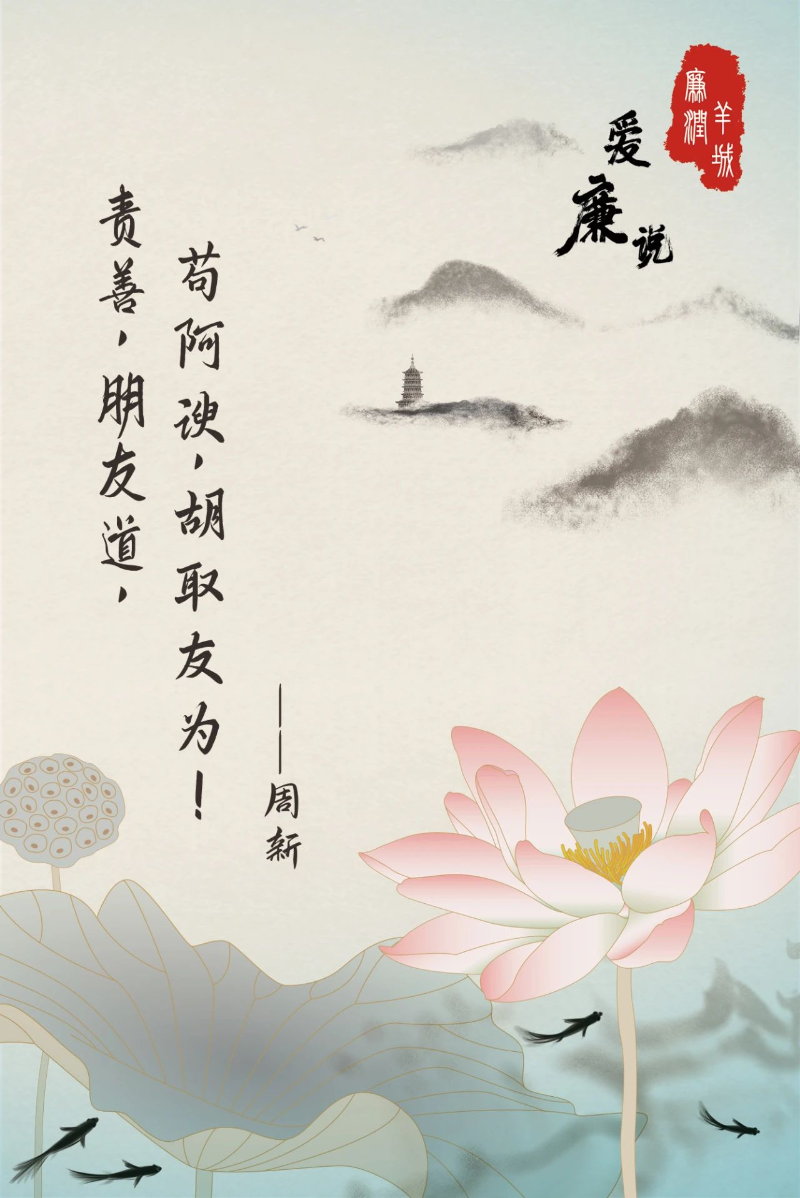 廉潤
羊城
爱廉说
责善，朋友道，
苟阿谀，胡取友为！
——周新